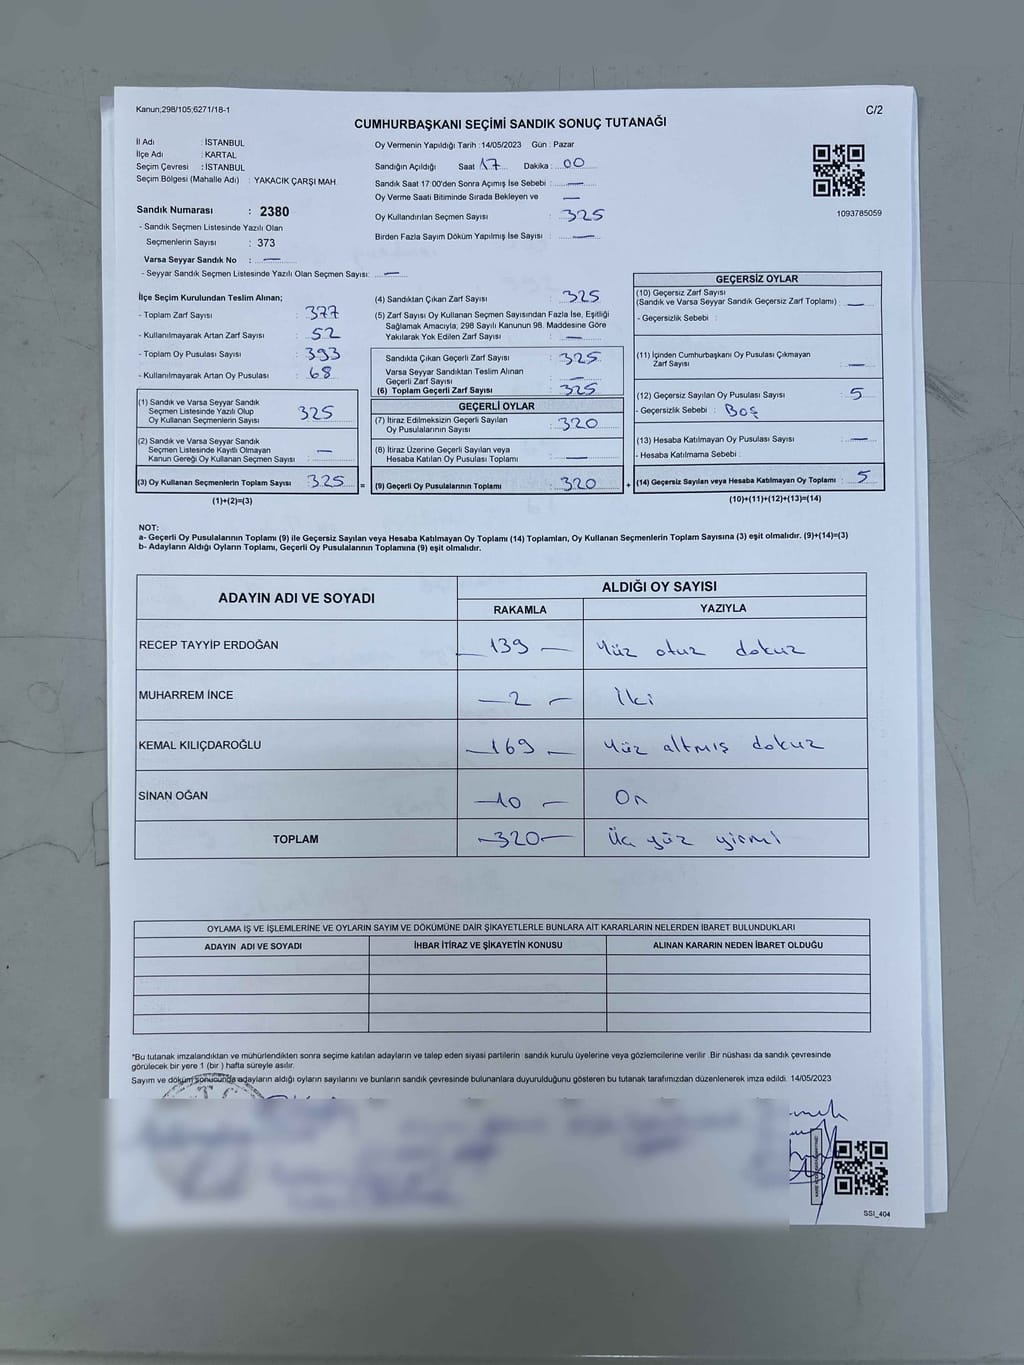 Kanun;298/105,6271/18-1
C/2
CUMHURBAŞKANI SEÇİMİ SANDIK SONUÇ TUTANAĞI
İl Adı : İSTANBUL
İlçe Adı : KARTAL
Seçim Çevresi : İSTANBUL
Seçim Bölgesi (Mahalle Adı) : YAKACIK ÇARŞI MAH.
Sandık Numarası : 2380
- Sandık Seçmen Listesinde Yazılı Olan
Seçmenlerin Sayısı : 373
Varsa Seyyar Sandık No : —
- Seyyar Sandık Seçmen Listesinde Yazılı Olan Seçmen Sayısı: —
Oy Vermenin Yapıldığı Tarih :14/05/2023 Gün : Pazar
Sandığın Açıldığı Saat 17 Dakika : 00
Sandık Saat 17:00'den Sonra Açımış İse Sebebi : —
Oy Verme Saati Bitiminde Sırada Bekleyen ve —
Oy Kullandırılan Seçmen Sayısı : 325
Birden Fazla Sayım Döküm Yapılmış İse Sayısı : —
1093785059
İlçe Seçim Kurulundan Teslim Alınan;
- Toplam Zarf Sayısı : 377
- Kullanılmayarak Artan Zarf Sayısı : 52
- Toplam Oy Pusulası Sayısı : 393
- Kullanılmayarak Artan Oy Pusulası : 68
(1) Sandık ve Varsa Seyyar Sandık
Seçmen Listesinde Yazılı Olup
Oy Kullanan Seçmenlerin Sayısı 325
(2) Sandık ve Varsa Seyyar Sandık
Seçmen Listesinde Kayıtlı Olmayan
Kanun Gereği Oy Kullanan Seçmen Sayısı : —
(3) Oy Kullanan Seçmenlerin Toplam Sayısı : 325 =
(1)+(2)=(3)
(4) Sandıktan Çıkan Zarf Sayısı : 325
(5) Zarf Sayısı Oy Kullanan Seçmen Sayısından Fazla İse, Eşitliği
Sağlamak Amacıyla; 298 Sayılı Kanunun 98. Maddesine Göre
Yakılarak Yok Edilen Zarf Sayısı : —
Sandıkta Çıkan Geçerli Zarf Sayısı : 325
Varsa Seyyar Sandıktan Teslim Alınan
Geçerli Zarf Sayısı : —
(6) Toplam Geçerli Zarf Sayısı : 325
GEÇERLİ OYLAR
(7) İtiraz Edilmeksizin Geçerli Sayılan
Oy Pusulalarının Sayısı : 320
(8) İtiraz Üzerine Geçerli Sayılan veya
Hesaba Katılan Oy Pusulası Toplamı : —
(9) Geçerli Oy Pusulalarının Toplamı : 320 +
GEÇERSİZ OYLAR
(10) Geçersiz Zarf Sayısı
(Sandık ve Varsa Seyyar Sandık Geçersiz Zarf Toplamı) : —
- Geçersizlik Sebebi :
(11) İçinden Cumhurbaşkanı Oy Pusulası Çıkmayan
Zarf Sayısı : —
(12) Geçersiz Sayılan Oy Pusulası Sayısı : 5
- Geçersizlik Sebebi : Boş
(13) Hesaba Katılmayan Oy Pusulası Sayısı : —
- Hesaba Katılmama Sebebi :
(14) Geçersiz Sayılan veya Hesaba Katılmayan Oy Toplamı : 5
(10)+(11)+(12)+(13)=(14)
NOT:
a- Geçerli Oy Pusulalarının Toplamı (9) ile Geçersiz Sayılan veya Hesaba Katılmayan Oy Toplamı (14) Toplamları, Oy Kullanan Seçmenlerin Toplam Sayısına (3) eşit olmalıdır. (9)+(14)=(3)
b- Adayların Aldığı Oyların Toplamı, Geçerli Oy Pusulalarının Toplamına (9) eşit olmalıdır.
ADAYIN ADI VE SOYADI ALDIĞI OY SAYISI
RAKAMLA YAZIYLA
RECEP TAYYİP ERDOĞAN — 139 — Yüz otuz dokuz
MUHARREM İNCE — 2 — İki
KEMAL KILIÇDAROĞLU — 169 — Yüz altmış dokuz
SİNAN OĞAN — 10 — On
TOPLAM — 320 — Üç yüz yirmi
OYLAMA İŞ VE İŞLEMLERİNE VE OYLARIN SAYIM VE DÖKÜMÜNE DAİR ŞİKAYETLERLE BUNLARA AİT KARARLARIN NELERDEN İBARET BULUNDUKLARI
ADAYIN ADI VE SOYADI İHBAR İTİRAZ VE ŞİKAYETİN KONUSU ALINAN KARARIN NEDEN İBARET OLDUĞU
*Bu tutanak imzalandıktan ve mühürlendikten sonra seçime katılan adayların ve talep eden siyasi partilerin sandık kurulu üyelerine veya gözlemcilerine verilir .Bir nüshası da sandık çevresinde
görülecek bir yere 1 (bir ) hafta süreyle asılır.
Sayım ve döküm sonucunda adayların aldığı oyların sayılarını ve bunların sandık çevresinde bulunanlara duyurulduğunu gösteren bu tutanak tarafımızdan düzenlenerek imza edildi. 14/05/2023
T.C.
SSI_404